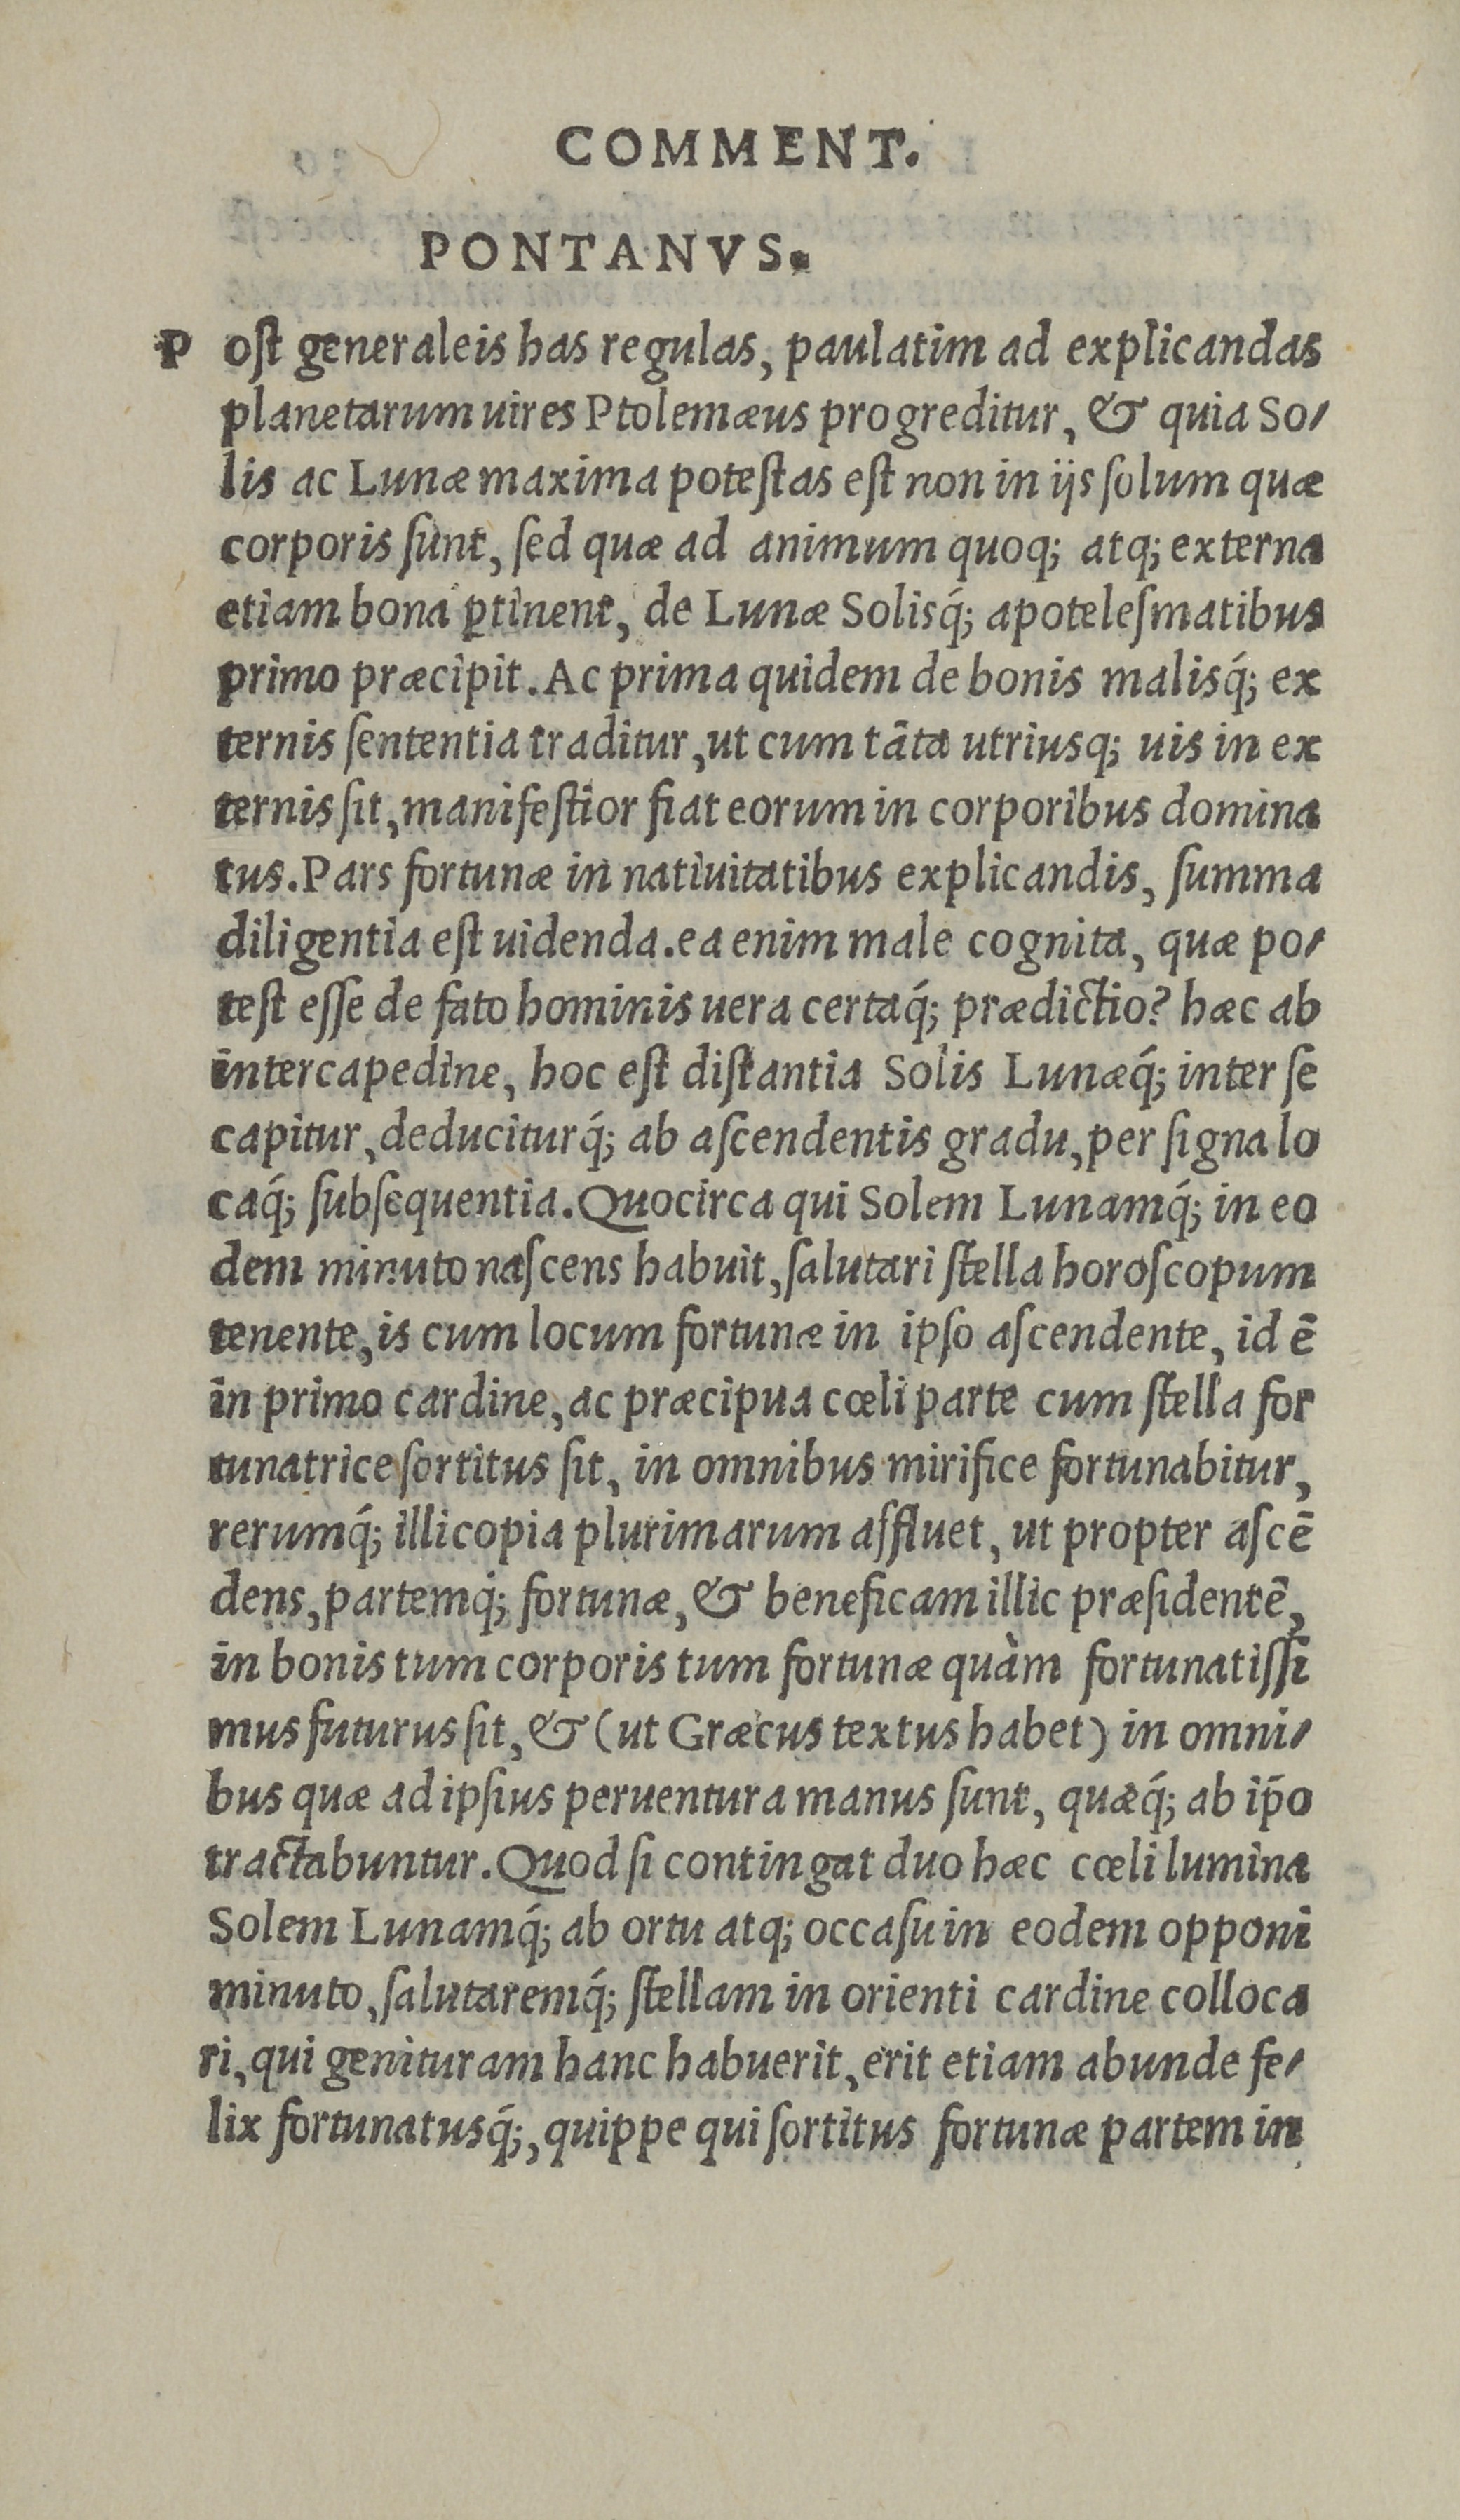 COMMENT.
PONTANVS.
P oſt generaleis has regulas, paulatim ad explicandas
planetarum uires Ptolemæus progreditur, & quia So⸗
lis ac Lunæ maxima poteſtas eſt non in ijs ſolum quæ
corporis ſunt, ſed quæ ad animum quoq; atq; externa
etiam bona ꝑtinent, de Lunæ Solisq́; apoteleſmatibus
primo præcipit. Ac prima quidem de bonis malisq́; ex
ternis ſententia traditur, ut cum tāta utriusq; uis in ex
ternis ſit, manifeſtior fiat eorum in corporibus domina
tus. Pars fortunæ in natiuitatibus explicandis, ſumma
diligentia eſt uidenda. ea enim male cognita, quæ po⸗
teſt eſſe de fato hominis uera certaq́; prædictio? hæc ab
intercapedine, hoc eſt diſtantia Solis Lunæq́; inter ſe
capitur, deduciturq́; ab aſcendentis gradu, per ſigna lo
caq́; ſubſequentia. Quocirca qui Solem Lunamq́; in eo
dem minuto naſcens habuit, ſalutari ſtella horoſcopum
tenente, is cum locum fortunæ in ipſo aſcendente, id ē
in primo cardine, ac præcipua cœli parte cum ſtella for
tunatrice ſortitus ſit, in omnibus mirifice fortunabitur,
rerumq́; illi copia plurimarum affluet, ut propter aſcē
dens, partemq́; fortunæ, & beneficam illic præſidentē,
in bonis tum corporis tum fortunæ quàm fortunatiſſi
mus futurus ſit, & (ut Græcus textus habet) in omni⸗
bus quæ ad ipſius peruentura manus ſunt, quæq́; ab ip̄o
tractabuntur. Quod ſi contingat duo hæc cœli lumina
Solem Lunamq́; ab ortu atq; occaſu in eodem opponi
minuto, ſalutaremq́; ſtellam in orienti cardine colloca
ri, qui genituram hanc habuerit, erit etiam abunde fe⸗
lix fortunatusq́;, quippe qui ſortitus fortunæ partem in